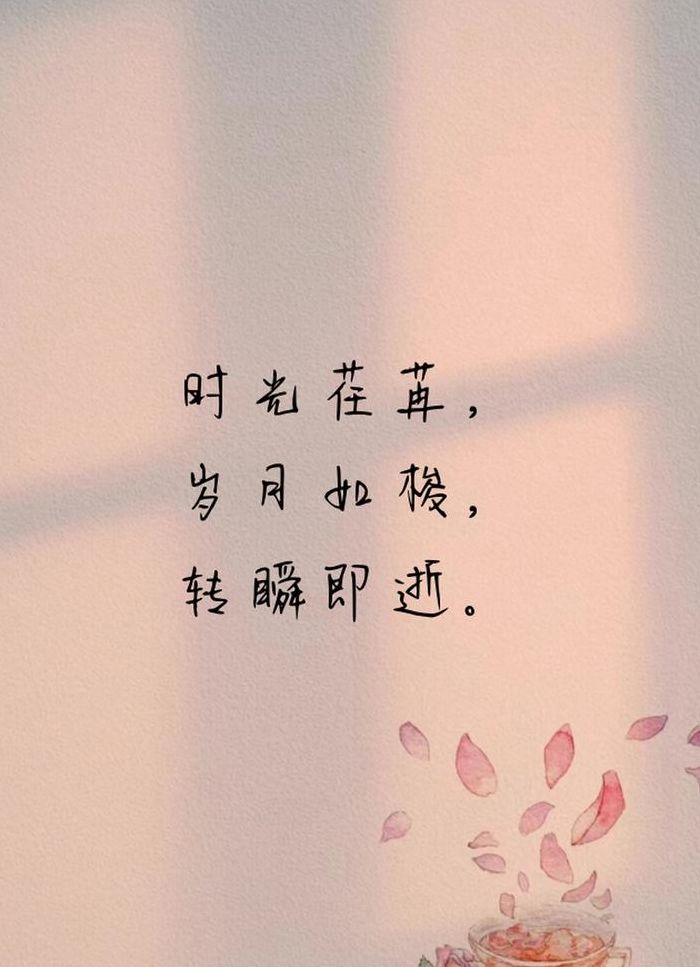 时光荏苒，
岁月如梭，
转瞬即逝。